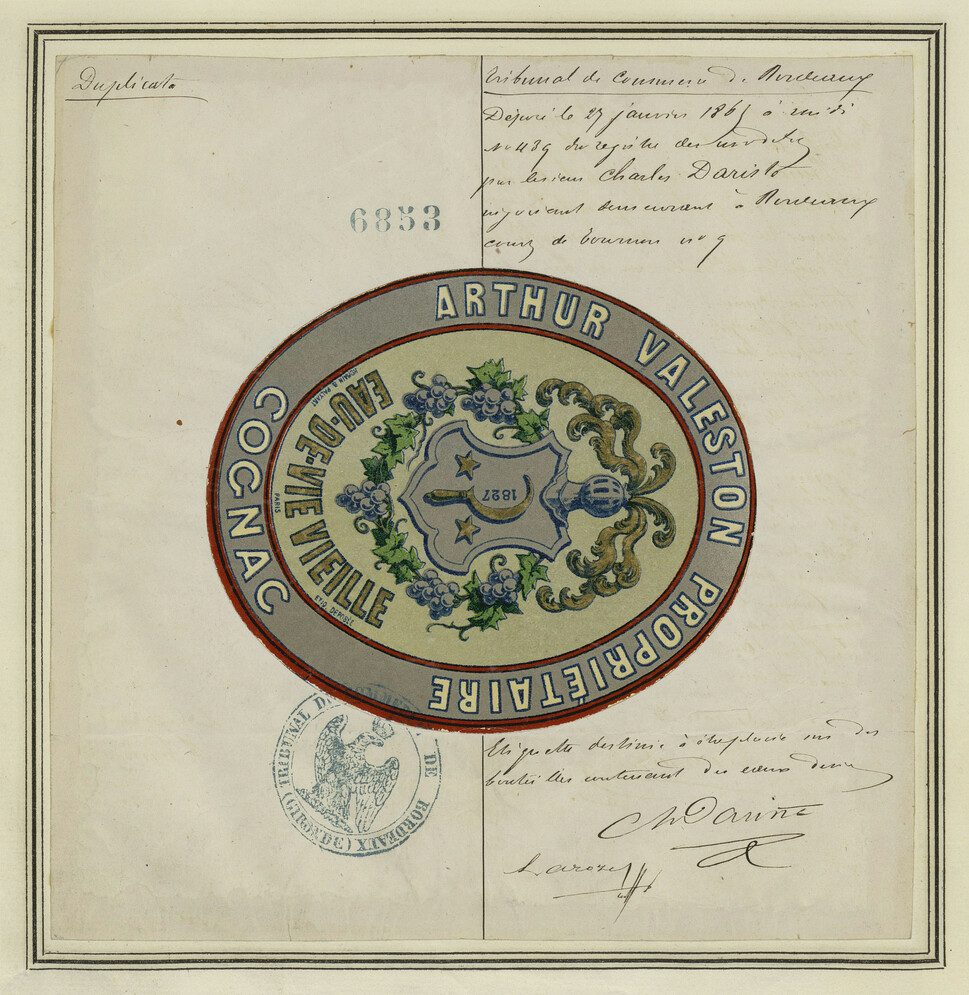 Duplicata
Tribunal de Commerce de Bordeaux
Déposé le 27 janvier 186 à midi
No 439 du registre des
par le sieur Charles
négociant demeurant à Bordeaux
cours de Tournon no 9
6853
ARTHUR VALESTON PROPRIÉTAIRE
COGNAC
EAU-DE-VIE VIEILLE
PARIS
ETIQ. DÉPOSÉE
1827
TRIBUNAL DE COMMERCE DE BORDEAUX
(GIRONDE)
Etiquette destinée à être placée sur des
bouteilles contenant des eaux de vie